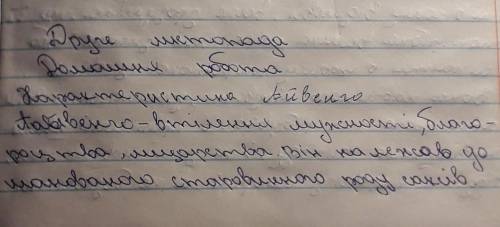 Друге листопада
Домашня робота
Характеристика Айвенго
Айвенго - втілення мужності, благо-
родства, лицарства. Він належав до
шанованого старовинного роду саксів.